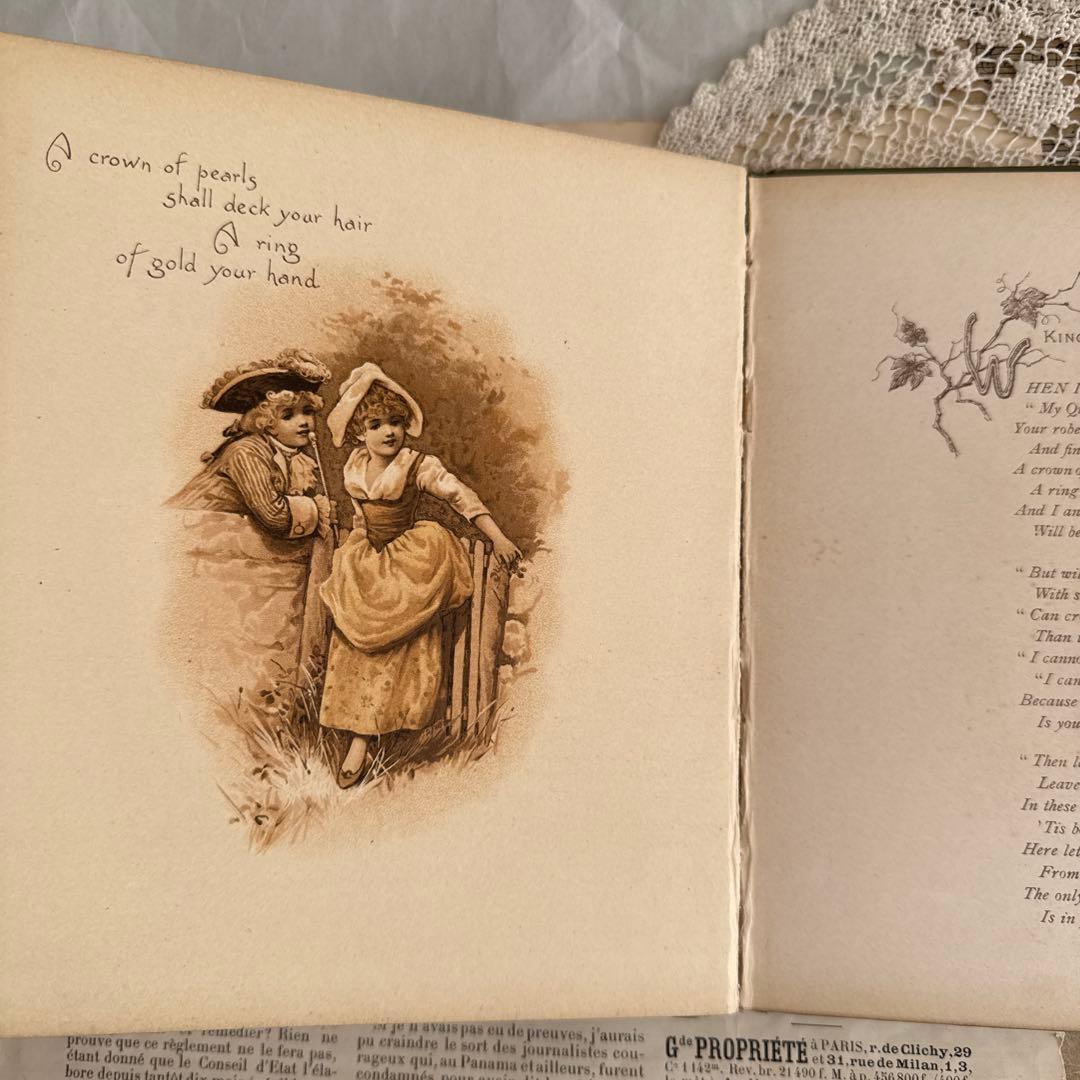 A crown of pearls
shall deck your hair
A ring
of gold your hand
W
HEN
"My
Your robe
And
A crown
A ring
And I
Will be
"But
With
"Can
Than
"I
"I can
Because
Is you
"Then
Leave
In these
'Tis
Here let
From
The only
Is in
remédier? Rien ne
prouve que ce règlement ne le fera pas,
étant donné que le Conseil d'Etat l'éla-
bore depuis tantôt dix
je n'avais pas eu de preuves, j'aurais
pu craindre le sort des journalistes cou-
rageux qui, au Panama et ailleurs, furent
condamnés pour avoir
Gde PROPRIÉTÉ à PARIS, r. de Clichy, 29
et 31, rue de Milan, 1, 3,
Ce 1142m. Rev. br. 21 490 f. M. à p. 456 800 f.